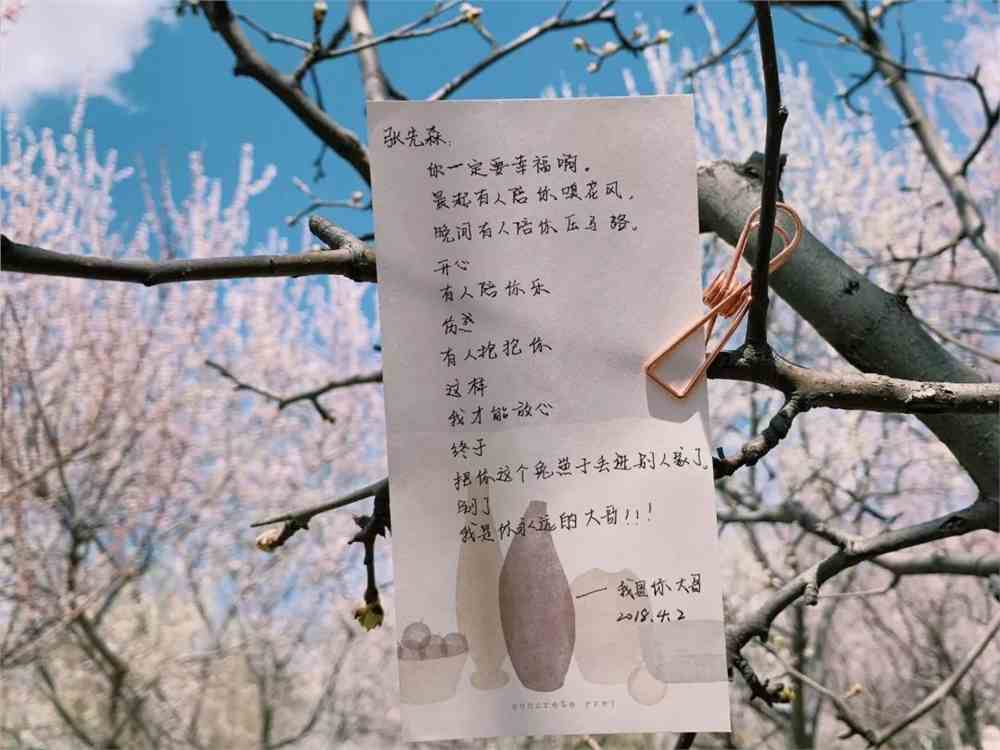 张先森：
你一定要幸福啊。
晨起有人陪你嗅花风，
晚间有人陪你压马路。
开心
有人陪你乐
伤感
有人抱抱你
这样
我才能放心
终于
把你这个兔崽子丢进别人家了。
别了
我是你永远的大哥!!!
——我是你大哥
2018.4.2
concrete